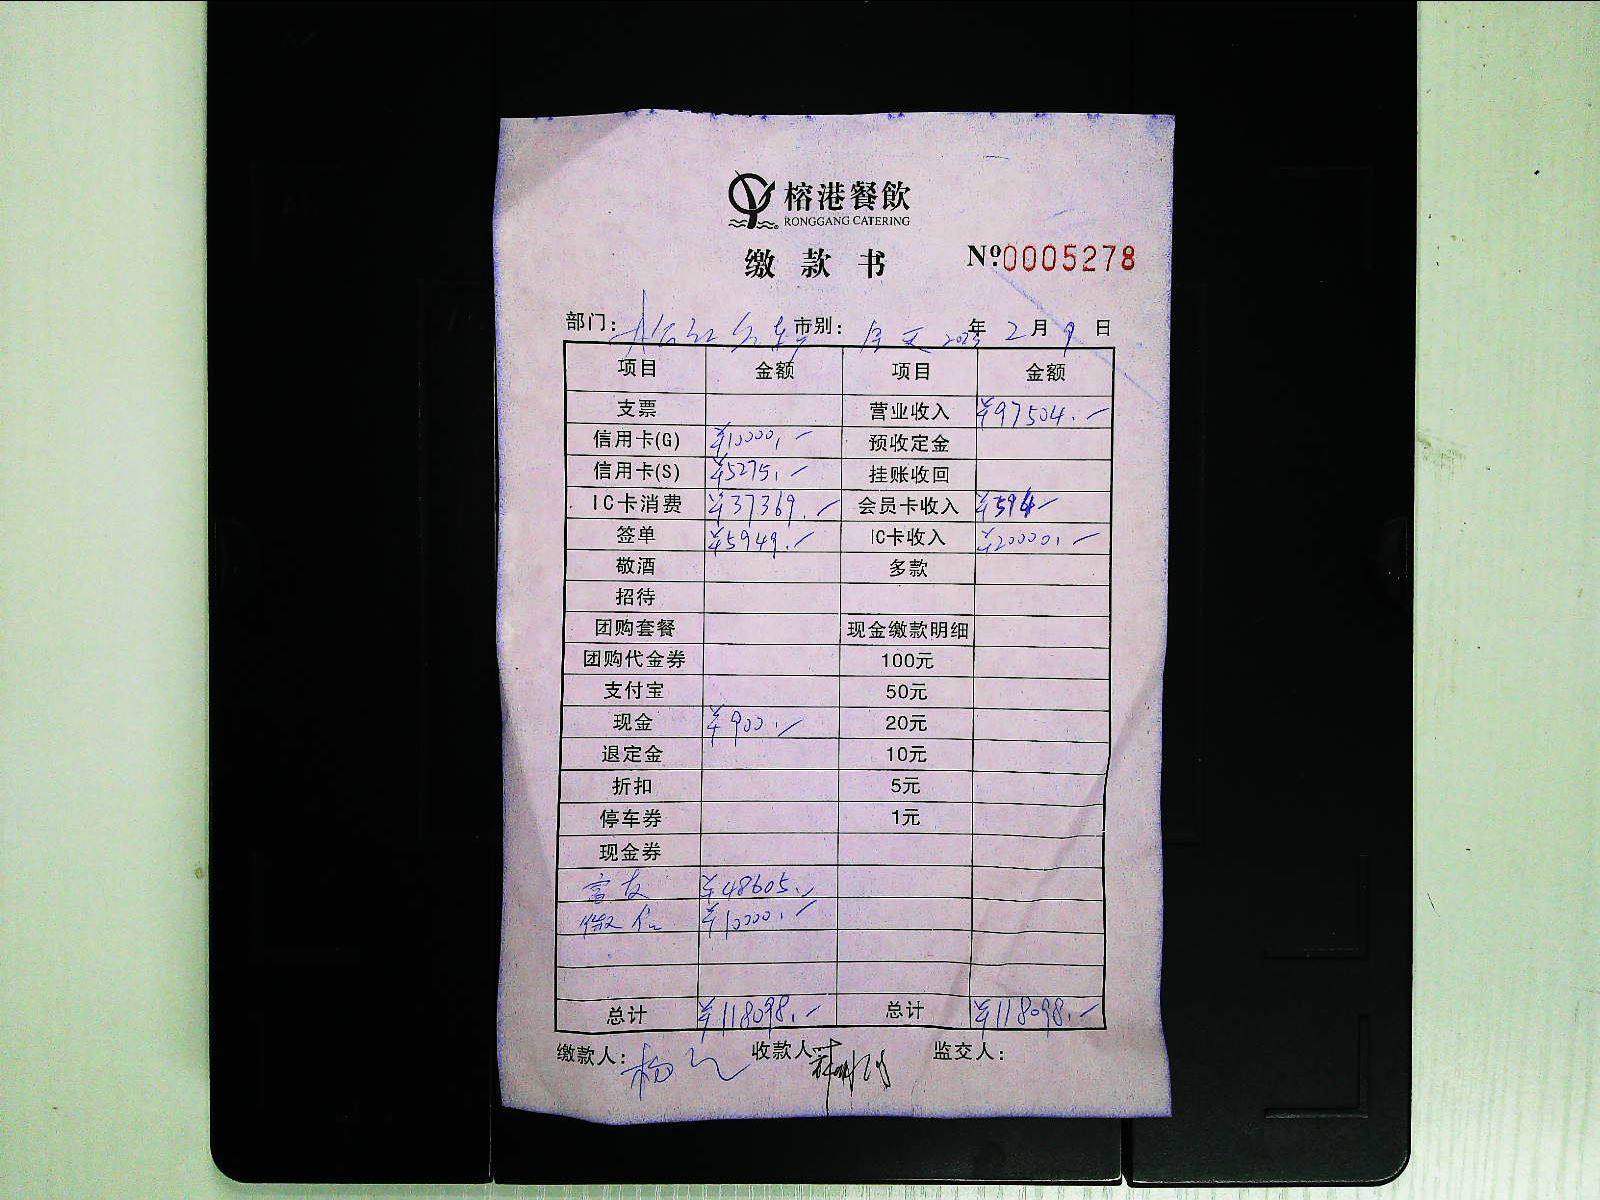 榕港餐飲
RONGGANG CATERING
缴款书 №0005278
部门： 市别：全天 2023年2月9日
项目 金额 项目 金额
支票 营业收入 ¥97504.-
信用卡(G) ¥10000.- 预收定金
信用卡(S) ¥5275.- 挂账收回
IC卡消费 ¥37369.- 会员卡收入 ¥594-
签单 ¥5949.- IC卡收入 ¥20000.-
敬酒 多款
招待
团购套餐 现金缴款明细
团购代金券 100元
支付宝 50元
现金 ¥900.- 20元
退定金 10元
折扣 5元
停车券 1元
现金券
富友 ¥48605.-
微信 ¥10000.-
总计 ¥118098.- 总计 ¥118098.-
缴款人：杨 收款人 监交人：